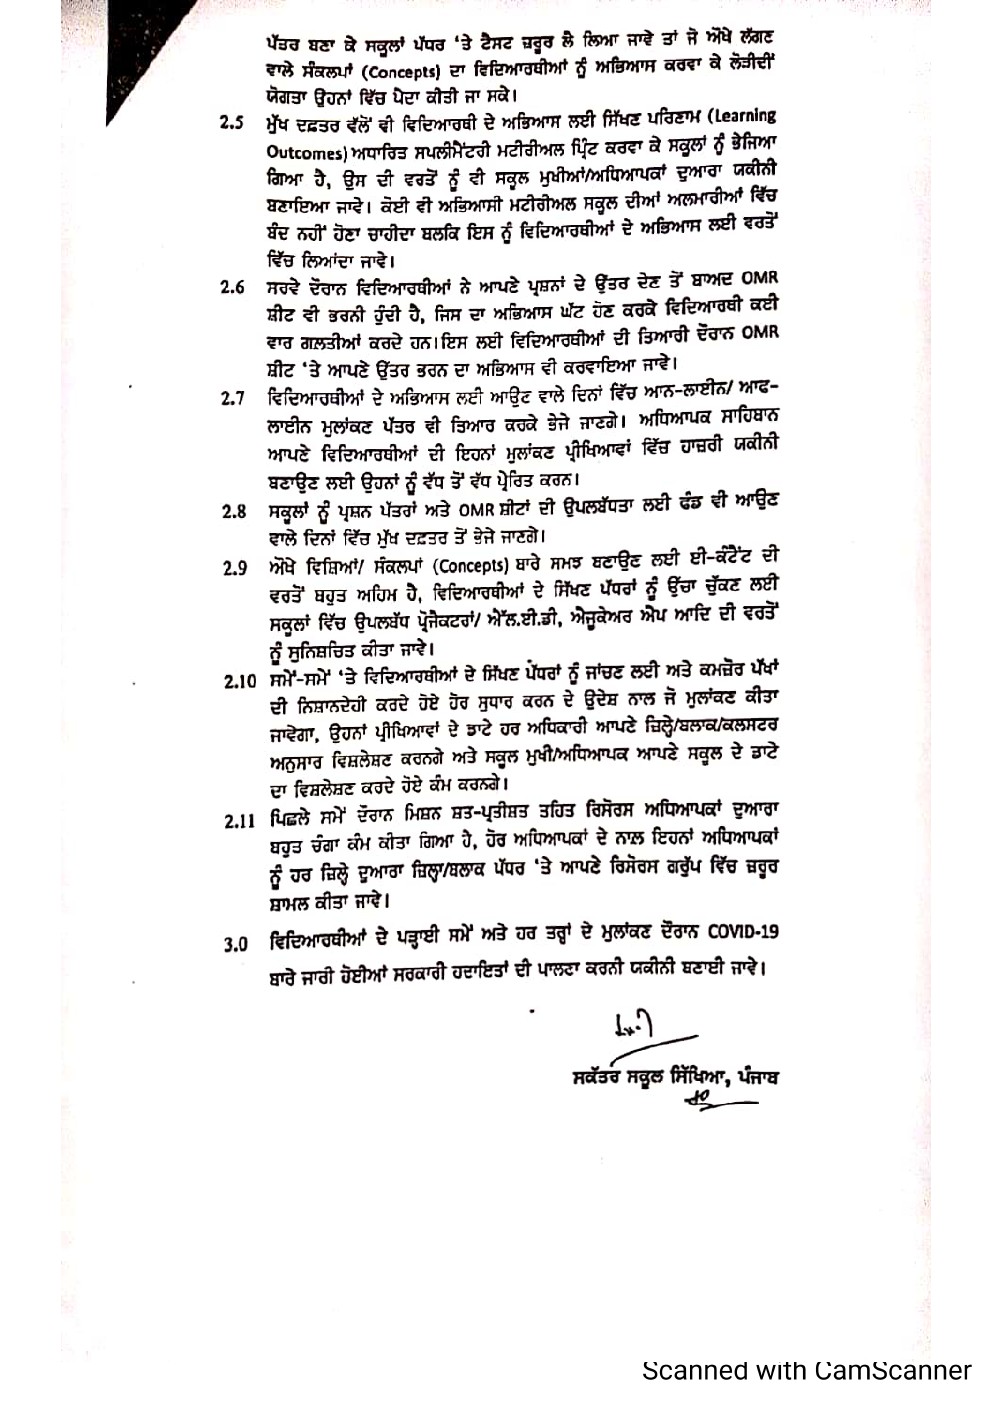 ਪੱਤਰ ਬਣਾ ਕੇ ਸਕੂਲਾਂ ਪੱਧਰ 'ਤੇ ਟੈਸਟ ਜ਼ਰੂਰ ਲੈ ਲਿਆ ਜਾਵੇ ਤਾਂ ਜੋ ਔਖੇ ਲੱਗਣ
ਵਾਲੇ ਸੰਕਲਪਾਂ (Concepts) ਦਾ ਵਿਦਿਆਰਥੀਆਂ ਨੂੰ ਅਭਿਆਸ ਕਰਵਾ ਕੇ ਲੋੜੀਦੀਂ
ਯੋਗਤਾ ਉਹਨਾਂ ਵਿੱਚ ਪੈਦਾ ਕੀਤੀ ਜਾ ਸਕੇ।
2.5 ਮੁੱਖ ਦਫ਼ਤਰ ਵੱਲੋਂ ਵੀ ਵਿਦਿਆਰਥੀ ਦੇ ਅਭਿਆਸ ਲਈ ਸਿੱਖਣ ਪਰਿਣਾਮ (Learning
Outcomes) ਅਧਾਰਿਤ ਸਪਲੀਮੈਂਟਰੀ ਮਟੀਰੀਅਲ ਪ੍ਰਿੰਟ ਕਰਵਾ ਕੇ ਸਕੂਲਾਂ ਨੂੰ ਭੇਜਿਆ
ਗਿਆ ਹੈ, ਉਸ ਦੀ ਵਰਤੋਂ ਨੂੰ ਵੀ ਸਕੂਲ ਮੁਖੀਆਂ/ਅਧਿਆਪਕਾਂ ਦੁਆਰਾ ਯਕੀਨੀ
ਬਣਾਇਆ ਜਾਵੇ। ਕੋਈ ਵੀ ਅਭਿਆਸੀ ਮਟੀਰੀਅਲ ਸਕੂਲ ਦੀਆਂ ਅਲਮਾਰੀਆਂ ਵਿੱਚ
ਬੰਦ ਨਹੀਂ ਹੋਣਾ ਚਾਹੀਦਾ ਬਲਕਿ ਇਸ ਨੂੰ ਵਿਦਿਆਰਥੀਆਂ ਦੇ ਅਭਿਆਸ ਲਈ ਵਰਤੋਂ
ਵਿੱਚ ਲਿਆਂਦਾ ਜਾਵੇ।
2.6 ਸਰਵੇ ਦੌਰਾਨ ਵਿਦਿਆਰਥੀਆਂ ਨੇ ਆਪਣੇ ਪ੍ਰਸ਼ਨਾਂ ਦੇ ਉੱਤਰ ਦੇਣ ਤੋਂ ਬਾਅਦ OMR
ਸ਼ੀਟ ਵੀ ਭਰਨੀ ਹੁੰਦੀ ਹੈ, ਜਿਸ ਦਾ ਅਭਿਆਸ ਘੱਟ ਹੋਣ ਕਰਕੇ ਵਿਦਿਆਰਥੀ ਕਈ
ਵਾਰ ਗਲਤੀਆਂ ਕਰਦੇ ਹਨ।ਇਸ ਲਈ ਵਿਦਿਆਰਥੀਆਂ ਦੀ ਤਿਆਰੀ ਦੌਰਾਨ OMR
ਸ਼ੀਟ 'ਤੇ ਆਪਣੇ ਉੱਤਰ ਭਰਨ ਦਾ ਅਭਿਆਸ ਵੀ ਕਰਵਾਇਆ ਜਾਵੇ।
2.7 ਵਿਦਿਆਰਥੀਆਂ ਦੇ ਅਭਿਆਸ ਲਈ ਆਉਣ ਵਾਲੇ ਦਿਨਾਂ ਵਿੱਚ ਆਨ-ਲਾਈਨ/ ਆਫ-
ਲਾਈਨ ਮੁਲਾਂਕਣ ਪੱਤਰ ਵੀ ਤਿਆਰ ਕਰਕੇ ਭੇਜੇ ਜਾਣਗੇ। ਅਧਿਆਪਕ ਸਾਹਿਬਾਨ
ਆਪਣੇ ਵਿਦਿਆਰਥੀਆਂ ਦੀ ਇਹਨਾਂ ਮੁਲਾਂਕਣ ਪ੍ਰੀਖਿਆਵਾਂ ਵਿੱਚ ਹਾਜ਼ਰੀ ਯਕੀਨੀ
ਬਣਾਉਣ ਲਈ ਉਹਨਾਂ ਨੂੰ ਵੱਧ ਤੋਂ ਵੱਧ ਪ੍ਰੇਰਿਤ ਕਰਨ।
2.8 ਸਕੂਲਾਂ ਨੂੰ ਪ੍ਰਸ਼ਨ ਪੱਤਰਾਂ ਅਤੇ OMR ਸ਼ੀਟਾਂ ਦੀ ਉਪਲਬੱਧਤਾ ਲਈ ਫੰਡ ਵੀ ਆਉਣ
ਵਾਲੇ ਦਿਨਾਂ ਵਿੱਚ ਮੁੱਖ ਦਫ਼ਤਰ ਤੋਂ ਭੇਜੇ ਜਾਣਗੇ।
2.9 ਔਖੇ ਵਿਸ਼ਿਆਂ/ ਸੰਕਲਪਾਂ (Concepts) ਬਾਰੇ ਸਮਝ ਬਣਾਉਣ ਲਈ ਈ-ਕੰਟੈਂਟ ਦੀ
ਵਰਤੋਂ ਬਹੁਤ ਅਹਿਮ ਹੈ, ਵਿਦਿਆਰਥੀਆਂ ਦੇ ਸਿੱਖਣ ਪੱਧਰਾਂ ਨੂੰ ਉੱਚਾ ਚੁੱਕਣ ਲਈ
ਸਕੂਲਾਂ ਵਿੱਚ ਉਪਲਬੱਧ ਪ੍ਰੋਜੈਕਟਰਾਂ/ ਐੱਲ.ਈ.ਡੀ, ਐਜੂਕੇਅਰ ਐਪ ਆਦਿ ਦੀ ਵਰਤੋਂ
ਨੂੰ ਸੁਨਿਸ਼ਚਿਤ ਕੀਤਾ ਜਾਵੇ।
2.10 ਸਮੇਂ-ਸਮੇਂ 'ਤੇ ਵਿਦਿਆਰਥੀਆਂ ਦੇ ਸਿੱਖਣ ਪੱਧਰਾਂ ਨੂੰ ਜਾਂਚਣ ਲਈ ਅਤੇ ਕਮਜ਼ੋਰ ਪੱਖਾਂ
ਦੀ ਨਿਸ਼ਾਨਦੇਹੀ ਕਰਦੇ ਹੋਏ ਹੋਰ ਸੁਧਾਰ ਕਰਨ ਦੇ ਉਦੇਸ਼ ਨਾਲ ਜੋ ਮੁਲਾਂਕਣ ਕੀਤਾ
ਜਾਵੇਗਾ, ਉਹਨਾਂ ਪ੍ਰੀਖਿਆਵਾਂ ਦੇ ਡਾਟੇ ਹਰ ਅਧਿਕਾਰੀ ਆਪਣੇ ਜ਼ਿਲ੍ਹੇ/ਬਲਾਕ/ਕਲਸਟਰ
ਅਨੁਸਾਰ ਵਿਸ਼ਲੇਸ਼ਣ ਕਰਨਗੇ ਅਤੇ ਸਕੂਲ ਮੁਖੀ/ਅਧਿਆਪਕ ਆਪਣੇ ਸਕੂਲ ਦੇ ਡਾਟੇ
ਦਾ ਵਿਸ਼ਲੇਸ਼ਣ ਕਰਦੇ ਹੋਏ ਕੰਮ ਕਰਨਗੇ।
2.11 ਪਿਛਲੇ ਸਮੇਂ ਦੌਰਾਨ ਮਿਸ਼ਨ ਸ਼ਤ-ਪ੍ਰਤੀਸ਼ਤ ਤਹਿਤ ਰਿਸੋਰਸ ਅਧਿਆਪਕਾਂ ਦੁਆਰਾ
ਬਹੁਤ ਚੰਗਾ ਕੰਮ ਕੀਤਾ ਗਿਆ ਹੈ, ਹੋਰ ਅਧਿਆਪਕਾਂ ਦੇ ਨਾਲ਼ ਇਹਨਾਂ ਅਧਿਆਪਕਾਂ
ਨੂੰ ਹਰ ਜ਼ਿਲ੍ਹੇ ਦੁਆਰਾ ਜ਼ਿਲ੍ਹਾ/ਬਲਾਕ ਪੱਧਰ 'ਤੇ ਆਪਣੇ ਰਿਸੋਰਸ ਗਰੁੱਪ ਵਿੱਚ ਜ਼ਰੂਰ
ਸ਼ਾਮਲ ਕੀਤਾ ਜਾਵੇ।
3.0 ਵਿਦਿਆਰਥੀਆਂ ਦੇ ਪੜ੍ਹਾਈ ਸਮੇਂ ਅਤੇ ਹਰ ਤਰ੍ਹਾਂ ਦੇ ਮੁਲਾਂਕਣ ਦੌਰਾਨ COVID-19
ਬਾਰੇ ਜਾਰੀ ਹੋਈਆਂ ਸਰਕਾਰੀ ਹਦਾਇਤਾਂ ਦੀ ਪਾਲਣਾ ਕਰਨੀ ਯਕੀਨੀ ਬਣਾਈ ਜਾਵੇ।
ਸਕੱਤਰ ਸਕੂਲ ਸਿੱਖਿਆ, ਪੰਜਾਬ
Scanned with CamScanner